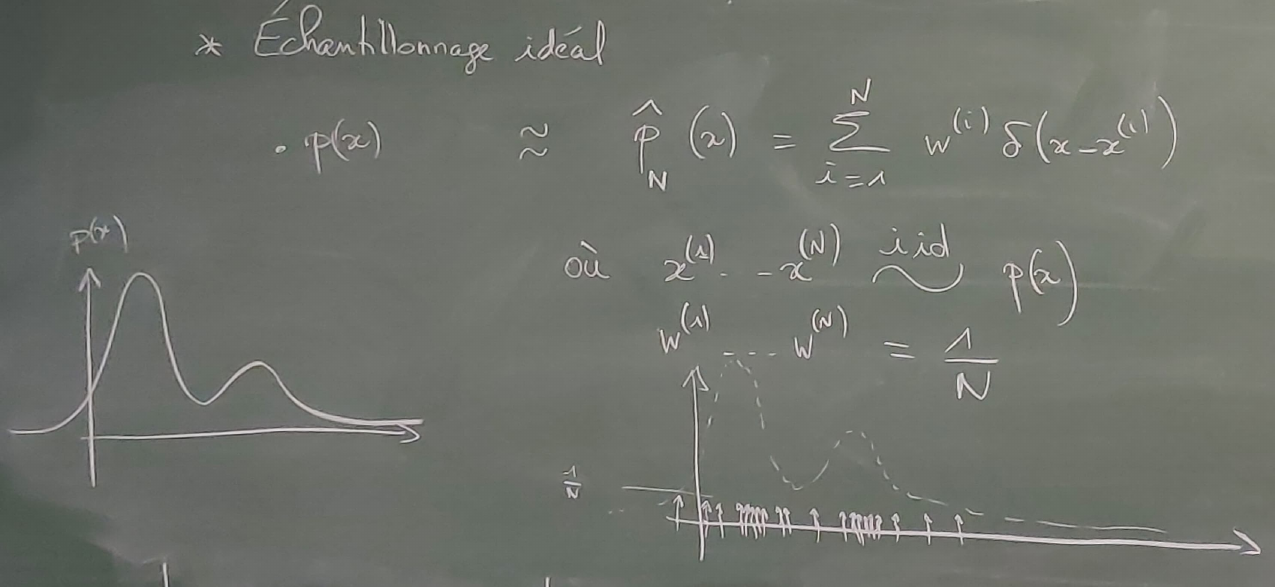 * Échantillonnage idéal
• p(x) ≈ p̂_N (x) = Σ_{i=1}^{N} w^{(i)} δ(x-x^{(i)})
p(x)
où x^{(1)} .. x^{(N)} iid ~ p(x)
w^{(1)} ... w^{(N)} = 1/N
1/N